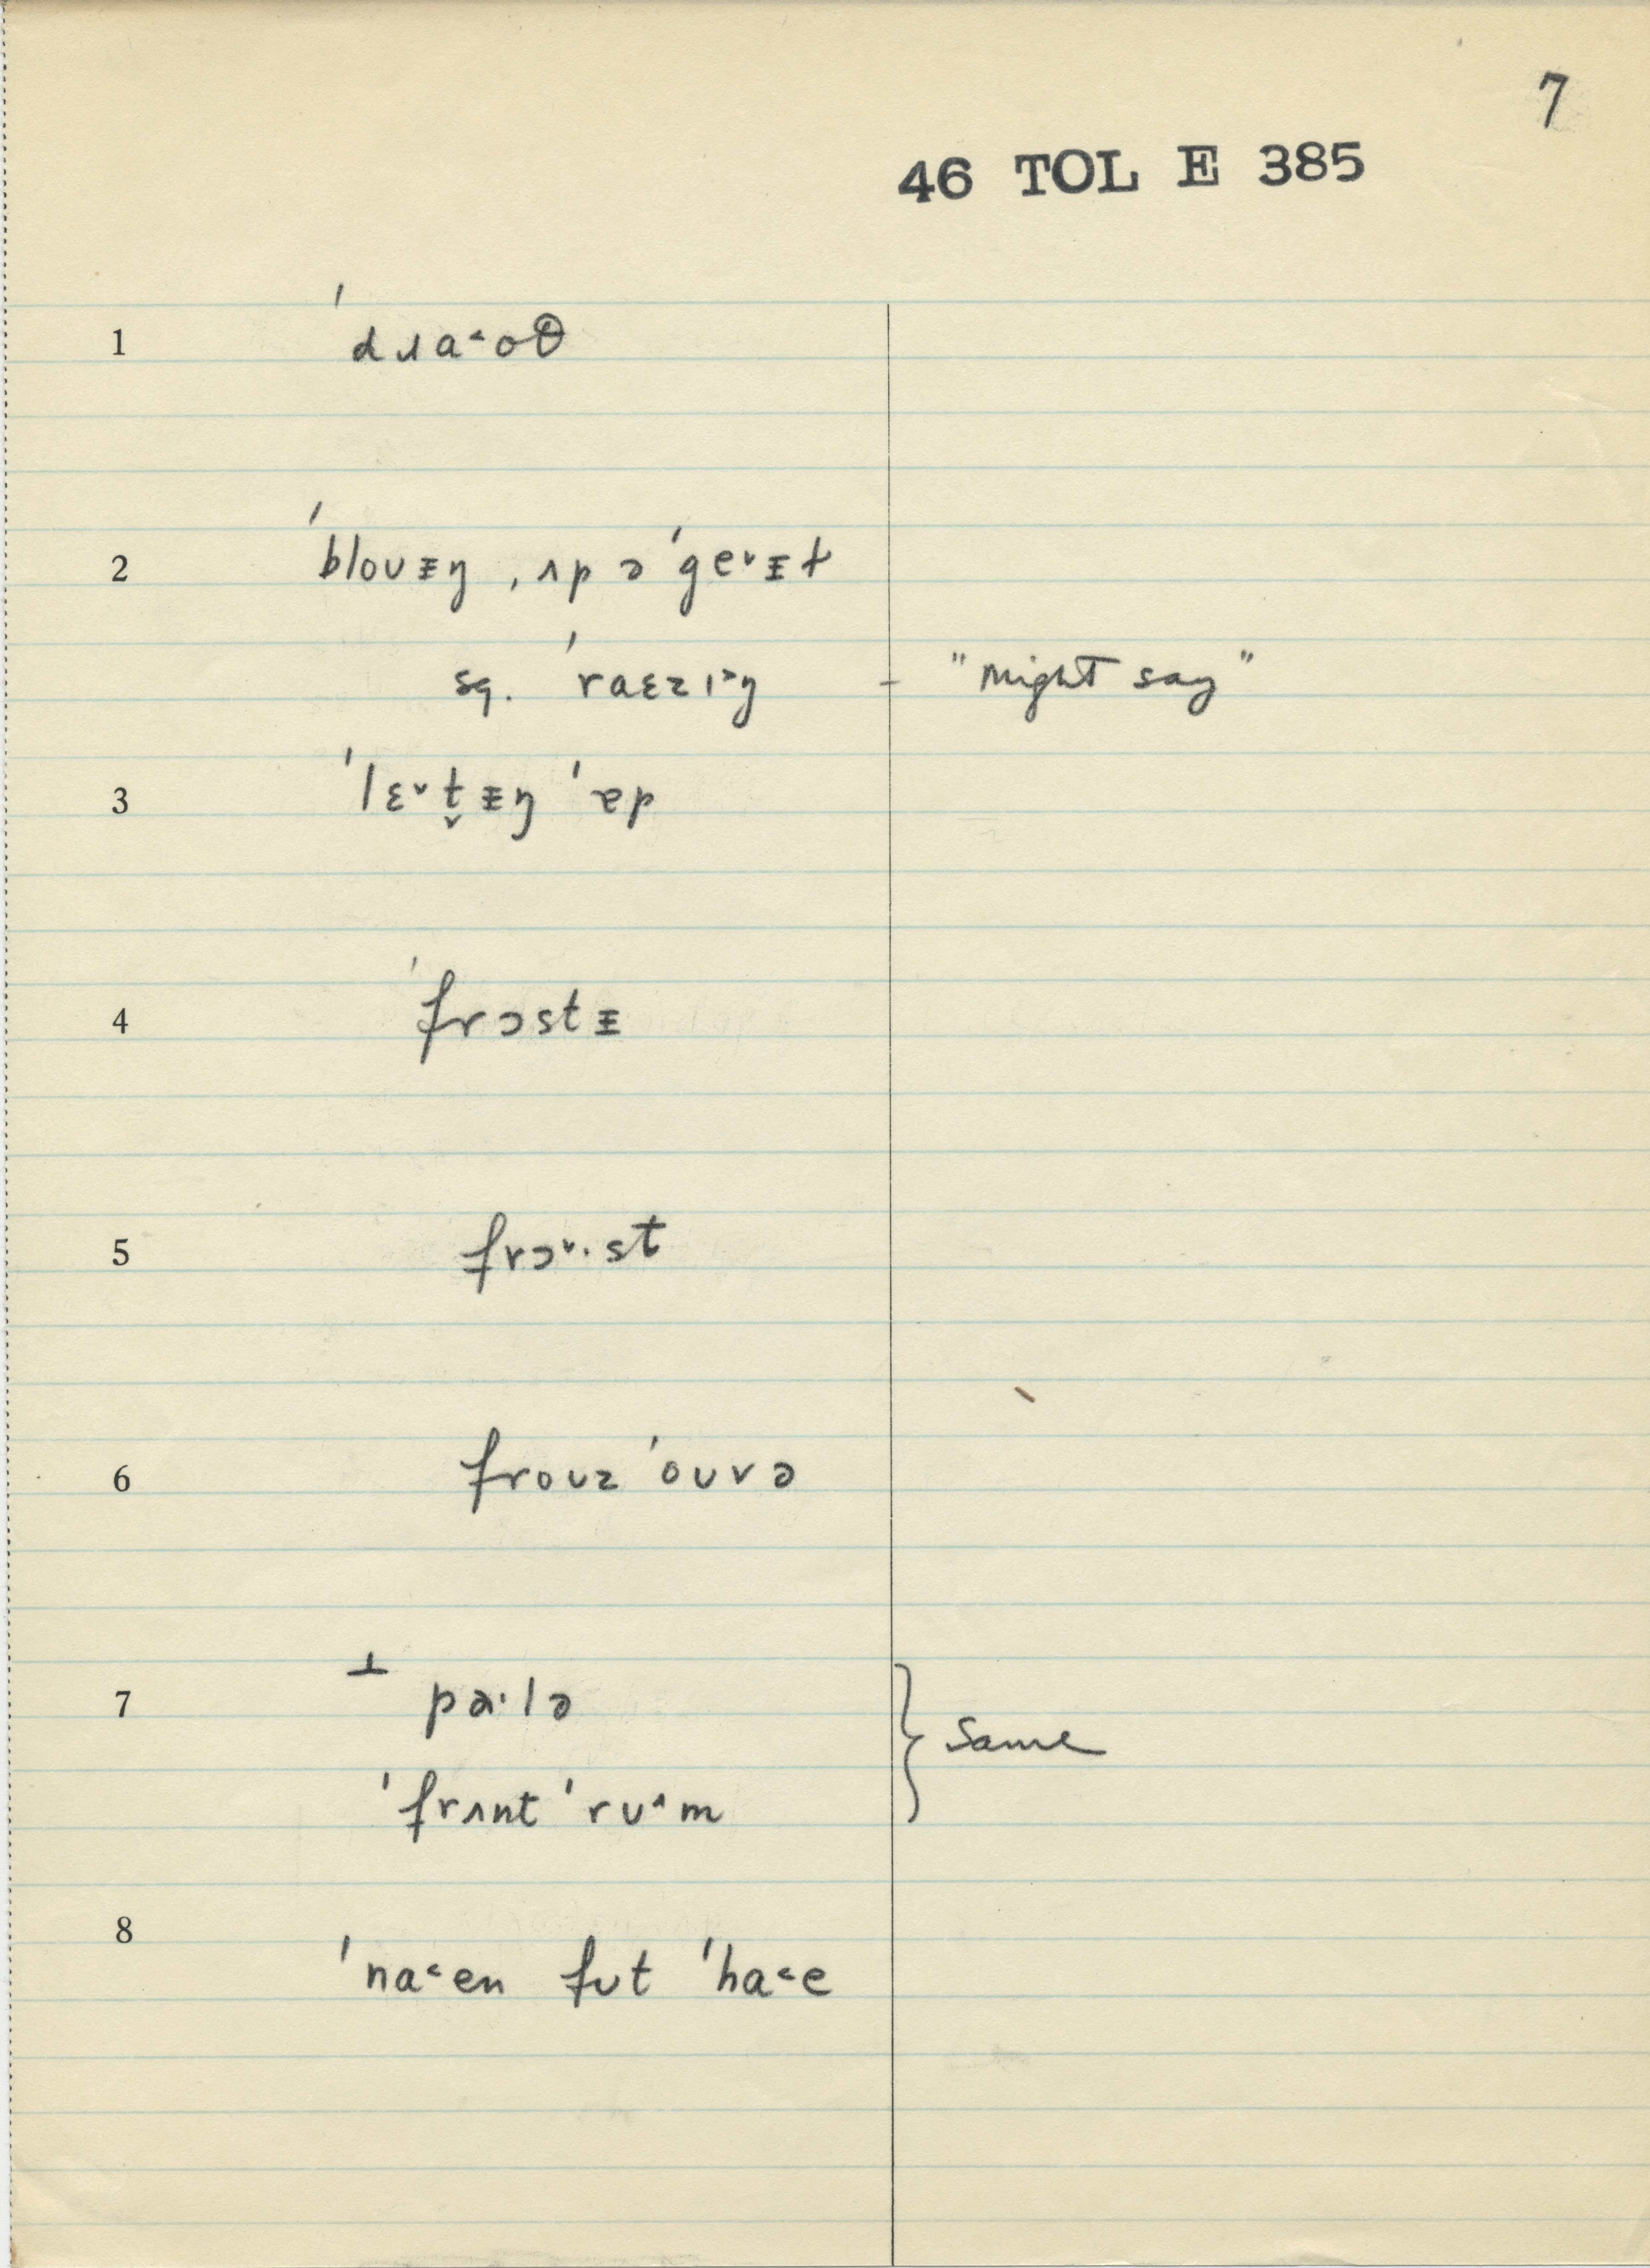 7
46 TOL E 385
1 ˈdɹa˂oθ
2 ˈbloʊᵻŋ ˌʌp ə ˈge˅ᵻt
sq. ˈraɛzɪ˃ŋ - "might say"
3 ˈlɛ˅t̬ᵻŋ ˈɐp
4 ˈfrɔstᵻ
5 frɔ˅·st
6 froʊz ˈoʊvə
7 ⊥ pɑ·lə
ˈfrʌnt ˈrʊ˄m } Same
8 ˈna˂en fʊt ˈha˂e